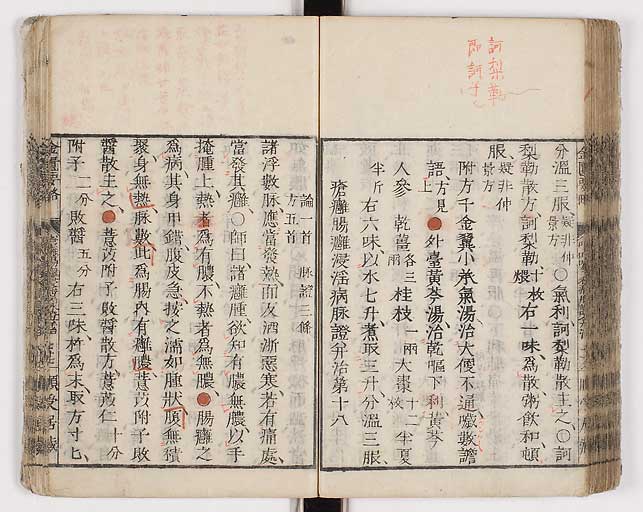 訶梨勒
即訶子
分溫三服疑非仲景方○氣利訶梨勒散主之○訶
梨勒散方訶梨勒十枚煨右一味爲散粥飮和頓
服疑非仲景方
附方千金翼小承氣湯治大便不通噦數譫
語方見上●外臺黃芩湯治乾嘔下利黃芩
人參 乾薑各三兩桂枝一兩大棗十二枚半夏
半斤右六味以水七升煮取三升分溫三服
瘡癰腸癰浸淫病脉證幷治第十八
論一首 脉證三條
方五首
諸浮數脉應當發熱而反洒淅惡寒若有痛處
當發其癰○師曰諸癰腫欲知有膿無膿以手
掩腫上熱者爲有膿不熱者爲無膿●腸癰之
爲病其身甲錯腹皮急按之濡如腫狀腹無積
聚身無熱脉數此爲腸內有癰膿薏苡附子敗
醬散主之●薏苡附子敗醬散方薏苡仁十分
附子二分敗醬五分右三味杵爲末取方寸匕